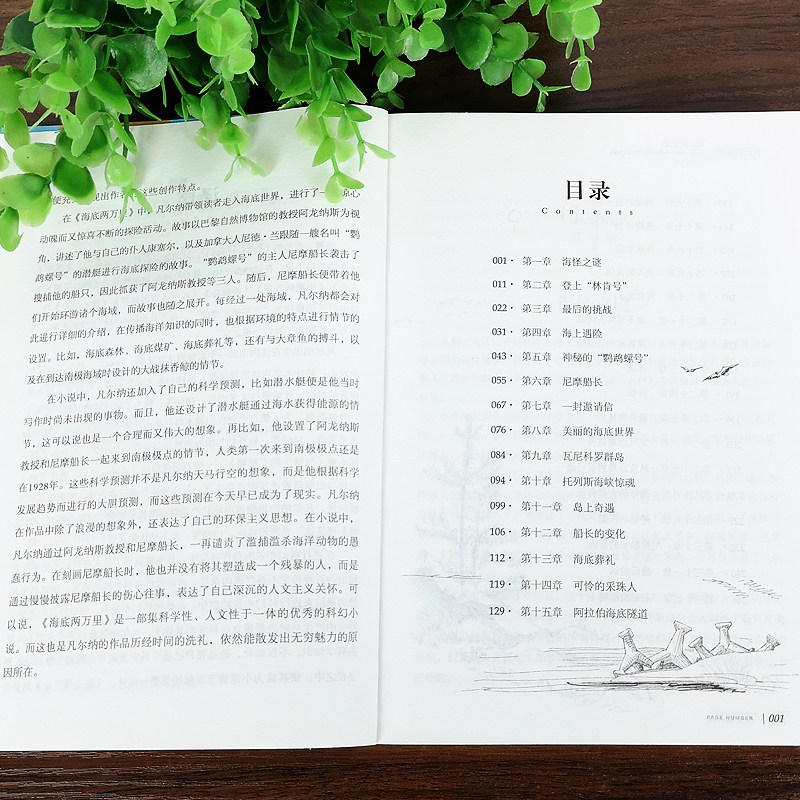 便充 现出作者 这些创作特点。
在《海底两万里》中，凡尔纳带领读者走入海底世界，进行了一 惊心
动魄而又惊喜不断的探险活动。故事以巴黎自然博物馆的教授阿龙纳斯为视
角，讲述了他与自己的仆人康塞尔，以及加拿大人尼德·兰跟随一艘名叫“鹦
鹉螺号”的潜艇进行海底探险的故事。“鹦鹉螺号”的主人尼摩船长袭击了
搜捕他的船只，因此抓获了阿龙纳斯教授等三人。随后，尼摩船长便带着他
们开始环游诸个海域，而故事也随之展开。每经过一处海域，凡尔纳都会对
此进行详细的介绍，在传播海洋知识的同时，也根据环境的特点进行情节的
设置。比如，海底森林、海底煤矿、海底葬礼等，还有与大章鱼的搏斗，以
及在到达南极海域时设计的大战抹香鲸的情节。
在小说中，凡尔纳还加入了自己的科学预测，比如潜水艇便是他当时
写作时尚未出现的事物。而且，他还设计了潜水艇通过海水获得能源的情
节，这可以说也是一个合理而又伟大的想象。再比如，他设置了阿龙纳斯
教授和尼摩船长一起来到南极极点的情节，人类第一次来到南极极点还是
在1928年。这些科学预测并不是凡尔纳天马行空的想象，而是他根据科学
发展趋势而进行的大胆预测，而这些预测在今天早已成为了现实。凡尔纳
在作品中除了浪漫的想象外，还表达了自己的环保主义思想。在小说中，
凡尔纳通过阿龙纳斯教授和尼摩船长，一再谴责了滥捕滥杀海洋动物的愚
蠢行为。在刻画尼摩船长时，他也并没有将其塑造成一个残暴的人，而是
通过慢慢披露尼摩船长的伤心往事，表达了自己深沉的人文主义关怀。可
以说，《海底两万里》是一部集科学性、人文性于一体的优秀的科幻小
说。而这也是凡尔纳的作品历经时间的洗礼，依然能散发出无穷魅力的原
因所在。
目录
Contents
001· 第一章 海怪之谜
011· 第二章 登上“林肯号”
022· 第三章 最后的挑战
031· 第四章 海上遇险
043· 第五章 神秘的“鹦鹉螺号”
055· 第六章 尼摩船长
067· 第七章 一封邀请信
076· 第八章 美丽的海底世界
084· 第九章 瓦尼科罗群岛
094· 第十章 托列斯海峡惊魂
099· 第十一章 岛上奇遇
106· 第十二章 船长的变化
112· 第十三章 海底葬礼
119· 第十四章 可怜的采珠人
129· 第十五章 阿拉伯海底隧道
PAGE NUMBER | 001